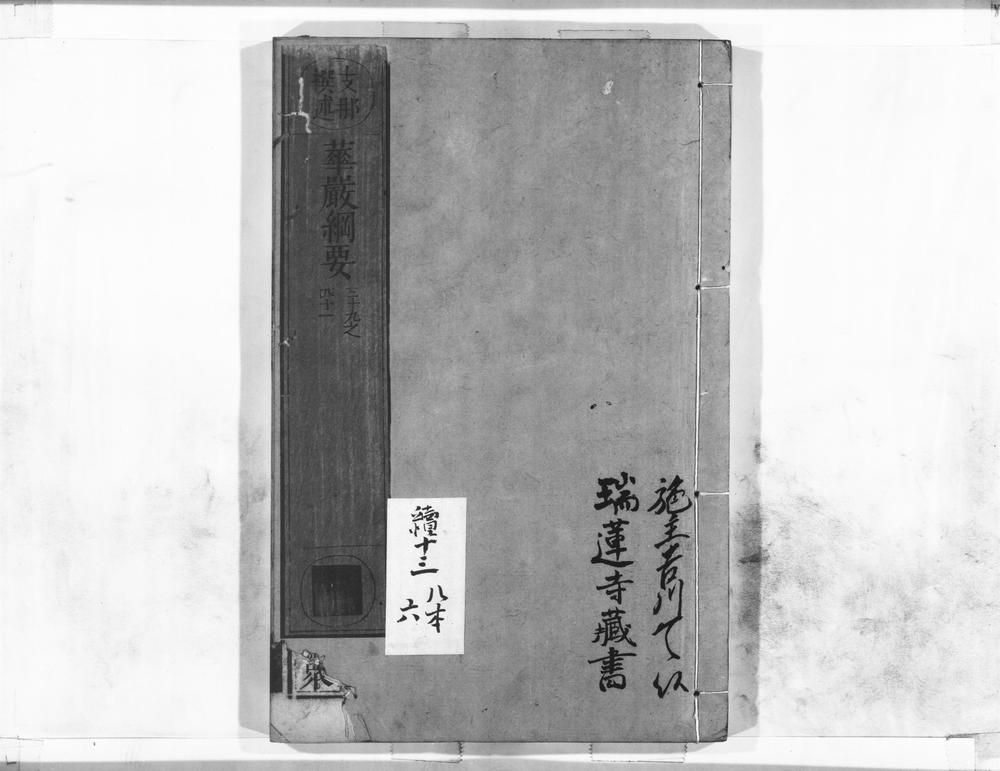 施主吉川
瑞蓮寺藏書
支那
撰述
華嚴綱要
三十九之
四十一
十三
八本
六